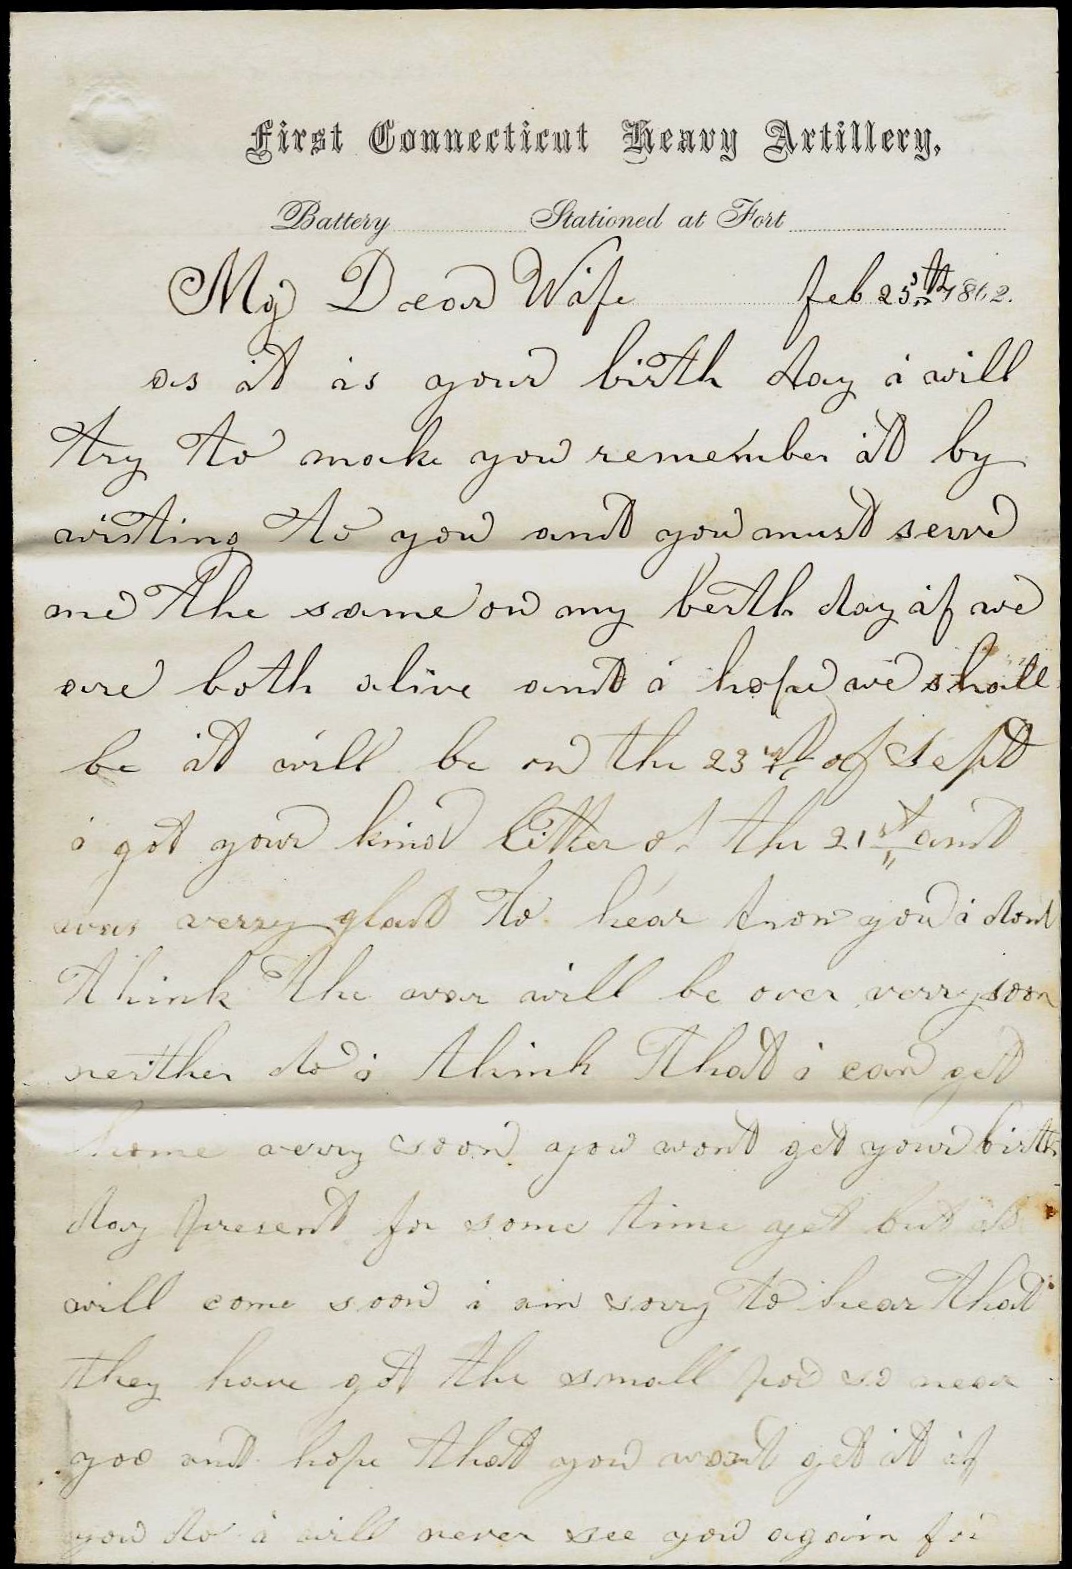 First Connecticut Heavy Artillery,
Battery Stationed at Fort
My Dear Wife feb 25th 1862.
as it is your birth day i will
try to make you remember it by
writing to you and you must serve
me the same on my berth day if we
are both alive and i hope we shall
be it will be on the 23rd of Sept
i got your kind letter of the 21st and
was verry glad to hear from you i dont
think the war will be over verry soon
neither do i think that i can get
home verry soon you wont get your birth
day present for some time yet but it
will come soon i am sorry to hear that
they have got the small pox so near
you and hope that you wont get it if
you do i will never see you again for